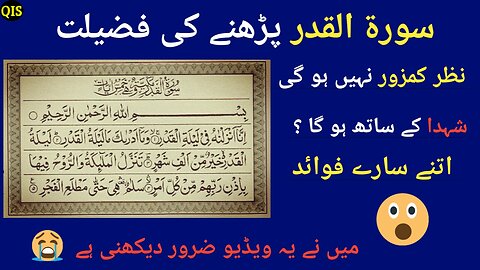 QIS
سورۃ القدر پڑھنے کی فضیلت
نظر کمزور نہیں ہو گی
شہدا کے ساتھ ہو گا ؟
اتنے سارے فوائد
بِسْمِ اللهِ الرَّحْمٰنِ الرَّحِيْمِ
اِنَّاۤ اَنْزَلْنٰهُ فِيْ لَيْلَةِ الْقَدْرِ وَمَاۤ اَدْرٰىكَ مَا لَيْلَةُ الْقَدْرِ لَيْلَةُ
الْقَدْرِ خَيْرٌ مِّنْ اَلْفِ شَهْرٍ تَنَزَّلُ الْمَلٰٓئِكَةُ وَالرُّوْحُ فِيْهَا
بِاِذْنِ رَبِّهِمْ مِّنْ كُلِّ اَمْرٍ سَلٰمٌ هِيَ حَتّٰى مَطْلَعِ الْفَجْرِ
میں نے یہ ویڈیو ضرور دیکھنی ہے